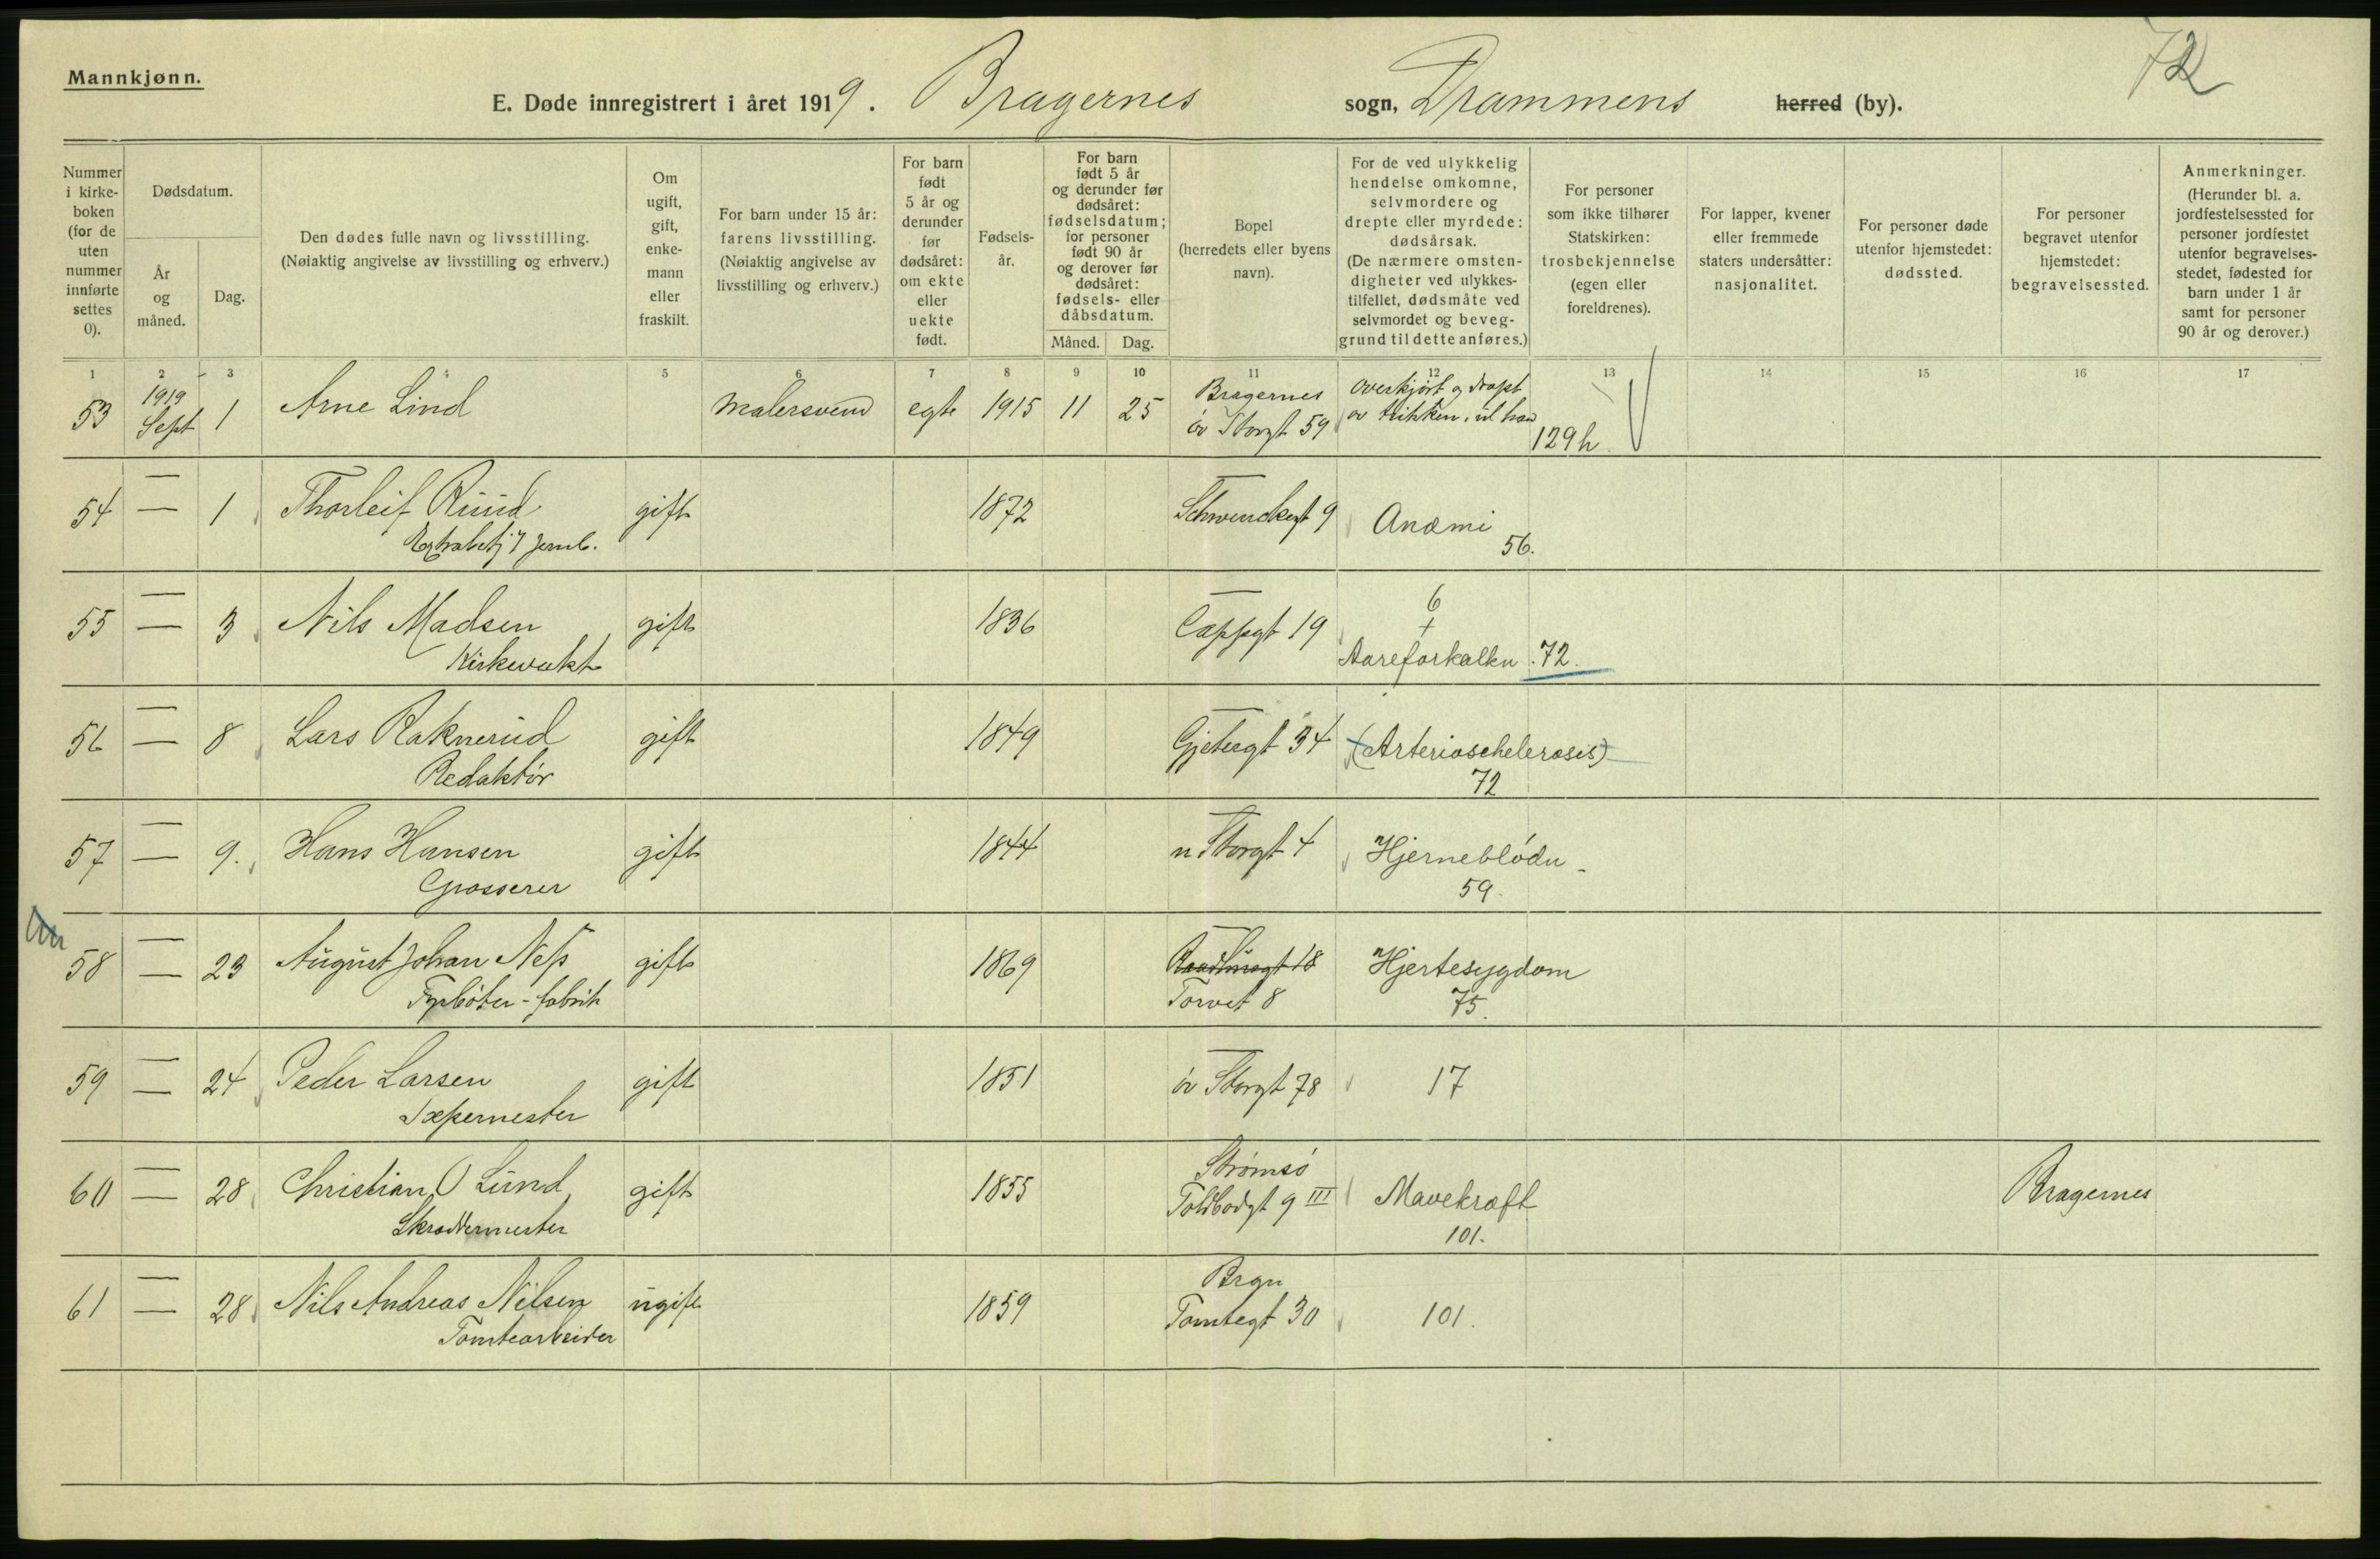 Mannkjønn.
72
E. Døde innregistrert i året 1919. Bragernes sogn, Drammens herred (by).
Nummer i kirke-boken (for de uten nummer innførte settes 0).
Dødsdatum.
År og måned.
Dag.
Den dødes fulle navn og livsstilling.
(Nøiaktig angivelse av livsstilling og erhverv.)
Om ugift, gift, enke-mann eller fraskilt.
For barn under 15 år: farens livsstilling.
(Nøiaktig angivelse av livsstilling og erhverv.)
For barn født 5 år og derunder før dødsåret: om ekte eller uekte født.
Fødsels-år.
For barn født 5 år og derunder før dødsåret: fødselsdatum; for personer født 90 år og derover før dødsåret: fødsels- eller dåbsdatum.
Måned. Dag.
Bopel (herredets eller byens navn).
For de ved ulykkelig hendelse omkomne, selvmordere og drepte eller myrdede: dødsårsak.
(De nærmere omsten-digheter ved ulykkes-tilfellet, dødsmåte ved selvmordet og beveg-grund til dette anføres.)
For personer som ikke tilhører Statskirken: trosbekjennelse (egen eller foreldrenes).
For lapper, kvener eller fremmede staters undersåtter: nasjonalitet.
For personer døde utenfor hjemstedet: dødssted.
For personer begravet utenfor hjemstedet: begravelsessted.
Anmerkninger.
(Herunder bl. a. jordfestelsessted for personer jordfestet utenfor begravelses-stedet, fødested for barn under 1 år samt for personer 90 år og derover.)
1 2 3 4 5 6 7 8 9 10 11 12 13 14 15 16 17
53 1919 Sept 1 Arne Lind malersvend egte 1915 11 25 Bragernes
öv Storgt 59 Overkjørt og dræpt
av trikken
129h.
54 — — 1 Thorleif Ruud gift 1872 — Schwenckegt 9 Anæmi
Jernb. 56.
55 — — 3 Nils Madsen gift 1836 — Cappgt 19 6 +
Kirkevakt Aareforkalkn. 72.
56 — — 8 Lars Raknerud gift 1849 — Gjetergt 34 (Arterioschelerosis)
Redaktör 72
57 — — 9. Hans Hansen gift 1844 — n Storgt 4 Hjerneblödn.
Grosserer 59.
58 — — 23 August Johan Ness gift 1869 — Raadhusgt 18 Hjertesygdom
Fyrböter - fabrik Torvet 8 75.
59 — — 24 Peder Larsen gift 1851 — öv Storgt 78 17
Sæpemester
60 — — 28 Christian O Lund gift 1855 Strømsö
Toldbodgt 9 III Mavekræft Bragernes
Skræddermester 101.
61 — — 28 Nils Andreas Nilsen ugift 1859 Brgn
Tomtegt 30 101.
Tomtearbeider